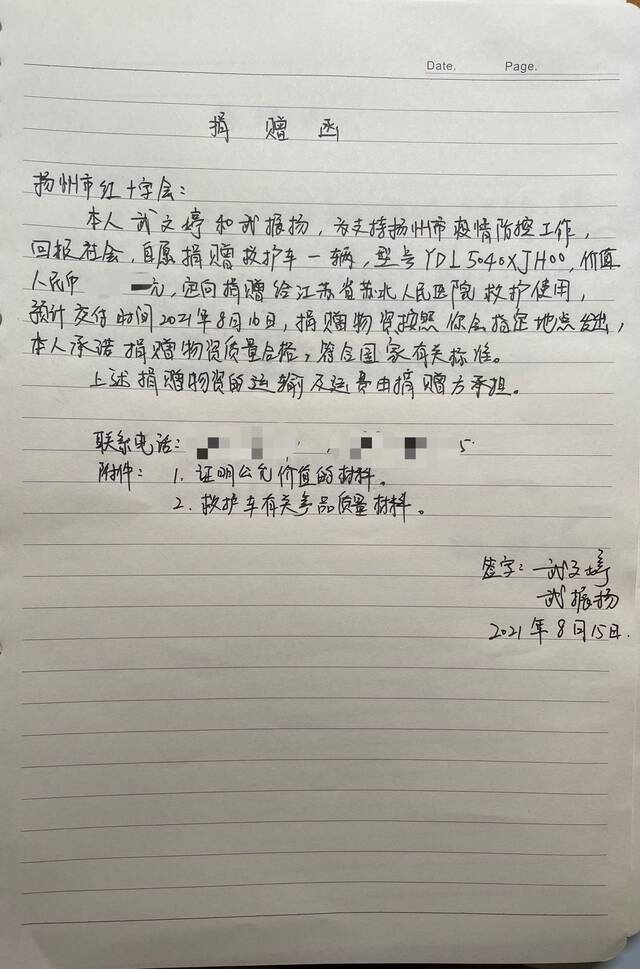 Date. Page.
捐赠函
扬州市红十字会：
本人武文婷和武振扬，为支持扬州市疫情防控工作，
回报社会，自愿捐赠救护车一辆，型号YDL5040XJH00，价值
人民币 元，定向捐赠给江苏省苏北人民医院救护使用，
预计交付时间2021年8月16日，捐赠物资按照你会指定地点发出，
本人承诺捐赠物资质量合格，符合国家有关标准。
上述捐赠物资的运输及运费由捐赠方承担。
联系电话： 5
附件：1. 证明公允价值的材料。
2. 救护车有关产品质量材料。
签字：武文婷
武振扬
2021年8月15日.